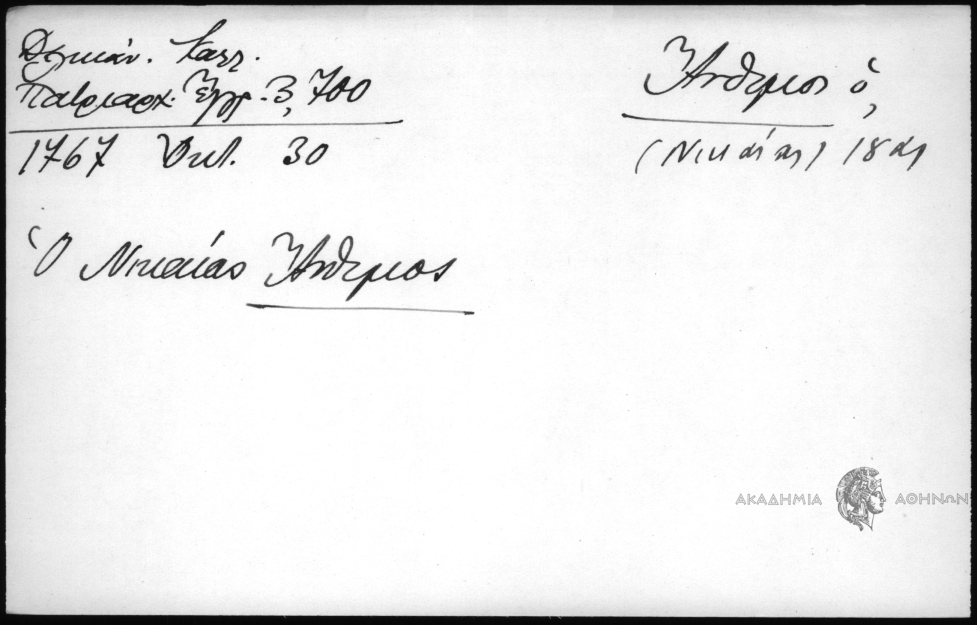 Δελικάν. Καλλ.
Πατριαρχ. Ἔγγρ. 3, 700
1767 Ὀκτ. 30
Ἄνθιμος ὁ,
(Νικαίας) 18 αι
Ὁ Νικαίας Ἄνθιμος
ΑΚΑΔΗΜΙΑ ΑΘΗΝΩΝ